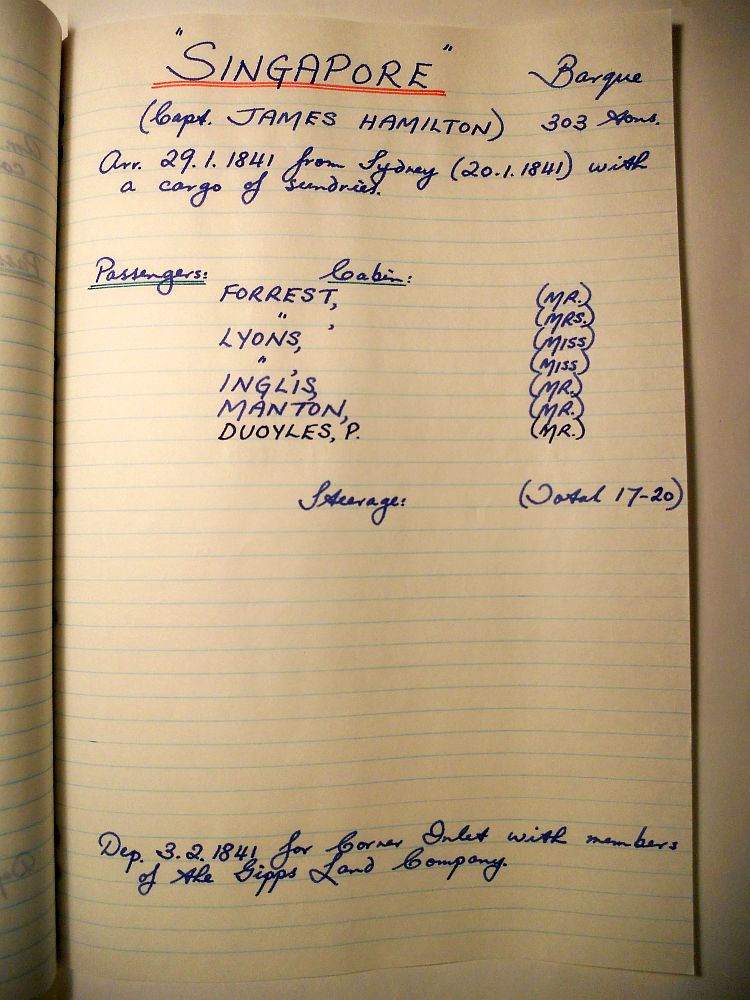 "SINGAPORE" Barque
(Capt. JAMES HAMILTON) 303 tons.
Arr. 29.1.1841 from Sydney (20.1.1841) with
a cargo of sundries.
Passengers: Cabin:
FORREST, (MR.)
" , (MRS.)
LYONS, (MISS)
" , (MISS)
INGLIS, (MR.)
MANTON, (MR.)
DUOYLES, P. (MR.)
Steerage: (Total 17-20)
Dep. 3.2.1841 for Corner Inlet with members
of the Gipps Land Company.